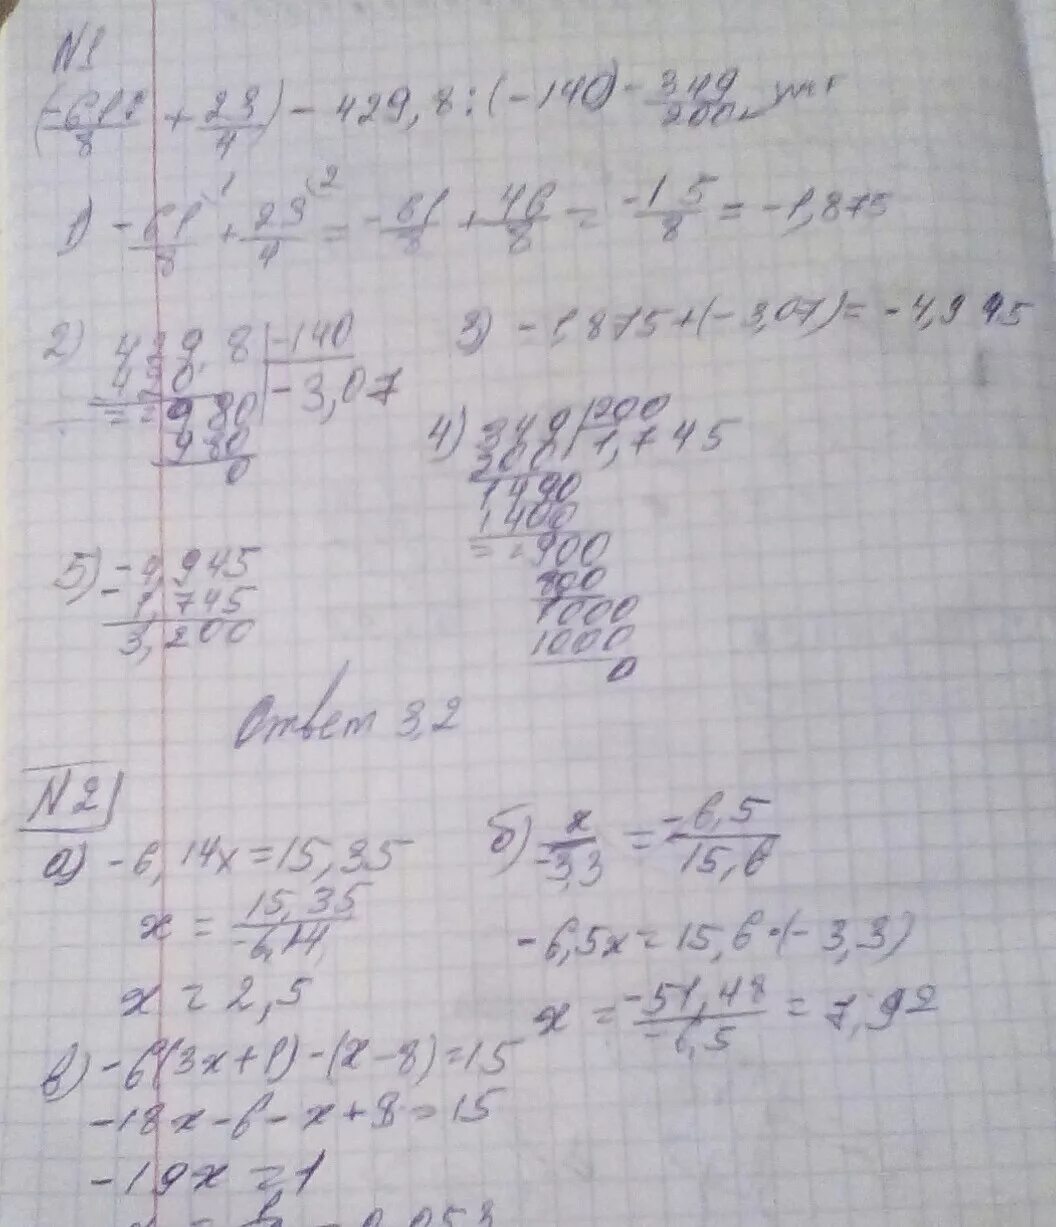 N1
(-61/8 + 23/4) - 429,8 : (-140) - 349/200
1) -61/8 + 23/4 = -61/8 + 46/8 = -15/8 = -1,875
2) 429,8 | -140
420 | -3,07
980
980
0
3) -1,875 + (-3,07) = -4,945
4) 349 | 200
200 | 1,745
1490
1400
900
800
1000
1000
0
5) -4,945
- 1,745
3,200
Ответ 3,2
N2
а) -6,14x = 15,35
x = 15,35/-6,14
x = 2,5
б) x/-3,3 = -6,5/15,6
-6,5x = 15,6 · (-3,3)
x = -51,48/-6,5 = 7,92
в) -6(3x+1) - (x-8) = 15
-18x - 6 - x + 8 = 15
-19x = 1